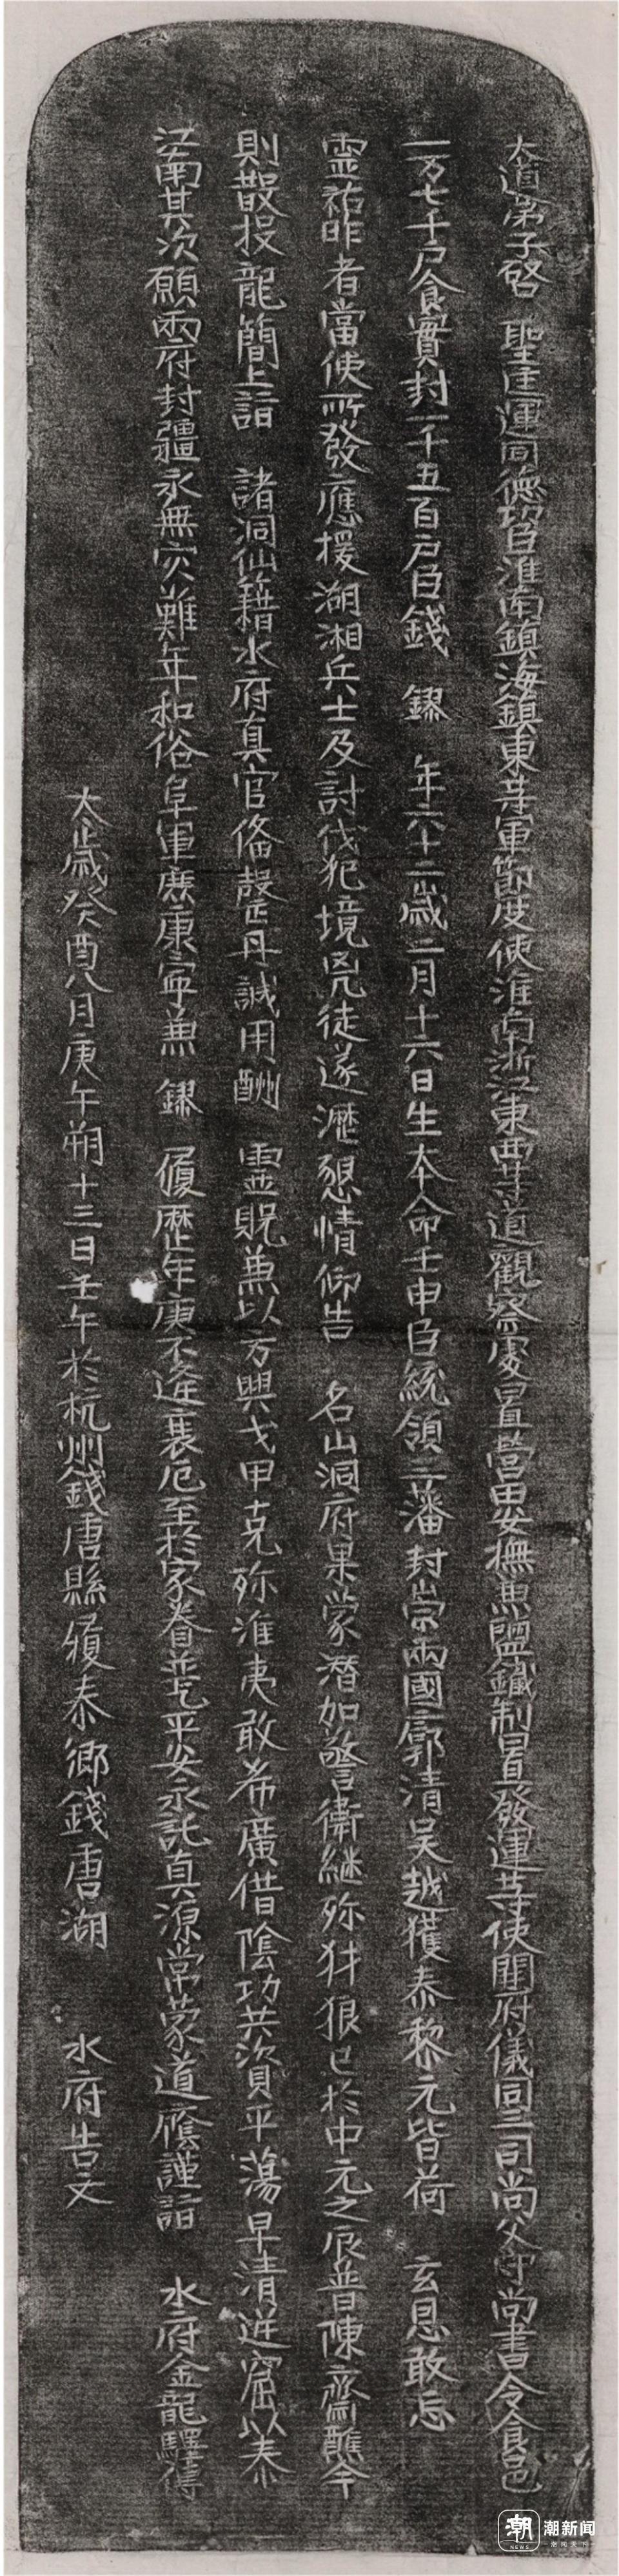 大道弟子啓　聖匡運同德功臣淮南鎮海鎮東等軍節度使淮南浙江東西等道觀察處置營田安撫兼鹽鐵制置發運等使開府儀同三司尚父守尚書令食邑
一万七千户食實封一千五百户臣錢　鏐　年六十二歲二月十六日生本命壬申臣統領三藩封崇兩國廓清吳越獲泰黎元皆荷　玄恩敢忘
靈祐昨者當使所發應援湖湘兵士及討伐犯境兇徒遂瀝懇情仰告　名山洞府果蒙潛加警衛継殄犲狼已於中元之辰普陳齋醮今
則散投龍簡上詣　諸洞仙籍水府真官俻罄丹誠用酬　靈貺兼以方興戈甲克殄淮夷敢希廣借陰功共資平蕩早清逆窟以泰
江南其次願兩府封疆永無灾難年和俗阜軍庶康寧兼　鏐　履歷年庚不逢衰厄至於家眷並乞平安永託真源常蒙道廕謹詣　水府金龍驛傳
太歲癸酉八月庚午朔十三日壬午於杭州錢唐縣履泰鄉錢唐湖　水府告文
潮新闻
NEWS